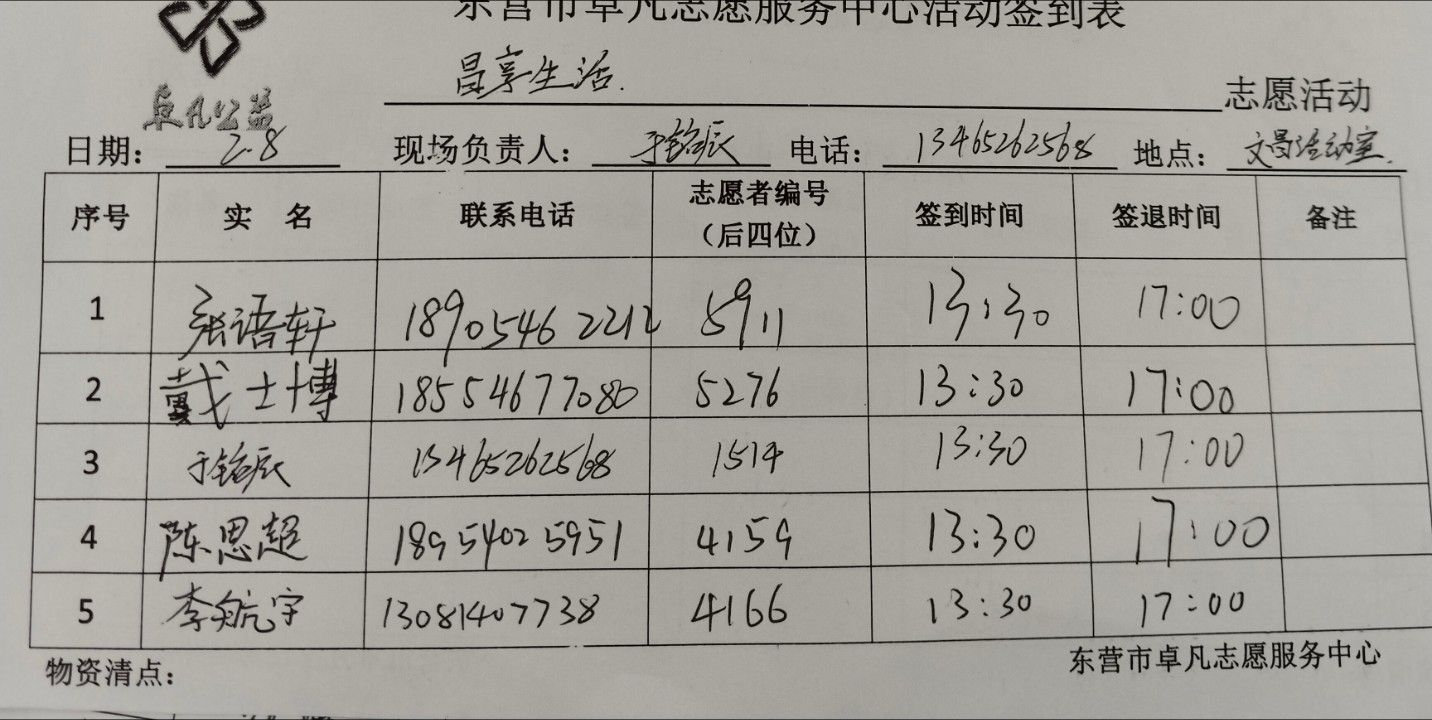 东营市卓凡志愿服务中心活动签到表
卓凡公益
昌享生活. 志愿活动
日期： 2.8 现场负责人： 于铭辰 电话： 13465262568 地点： 文昌活动室.
序号 实 名 联系电话 志愿者编号（后四位） 签到时间 签退时间 备注
1 张语轩 18905462212 5911 13:30 17:00
2 戴士博 18554677080 5276 13:30 17:00
3 于铭辰 13465262568 1514 13:30 17:00
4 陈思超 18954025951 4159 13:30 17:00
5 李航宇 13081407738 4166 13:30 17:00
物资清点： 东营市卓凡志愿服务中心